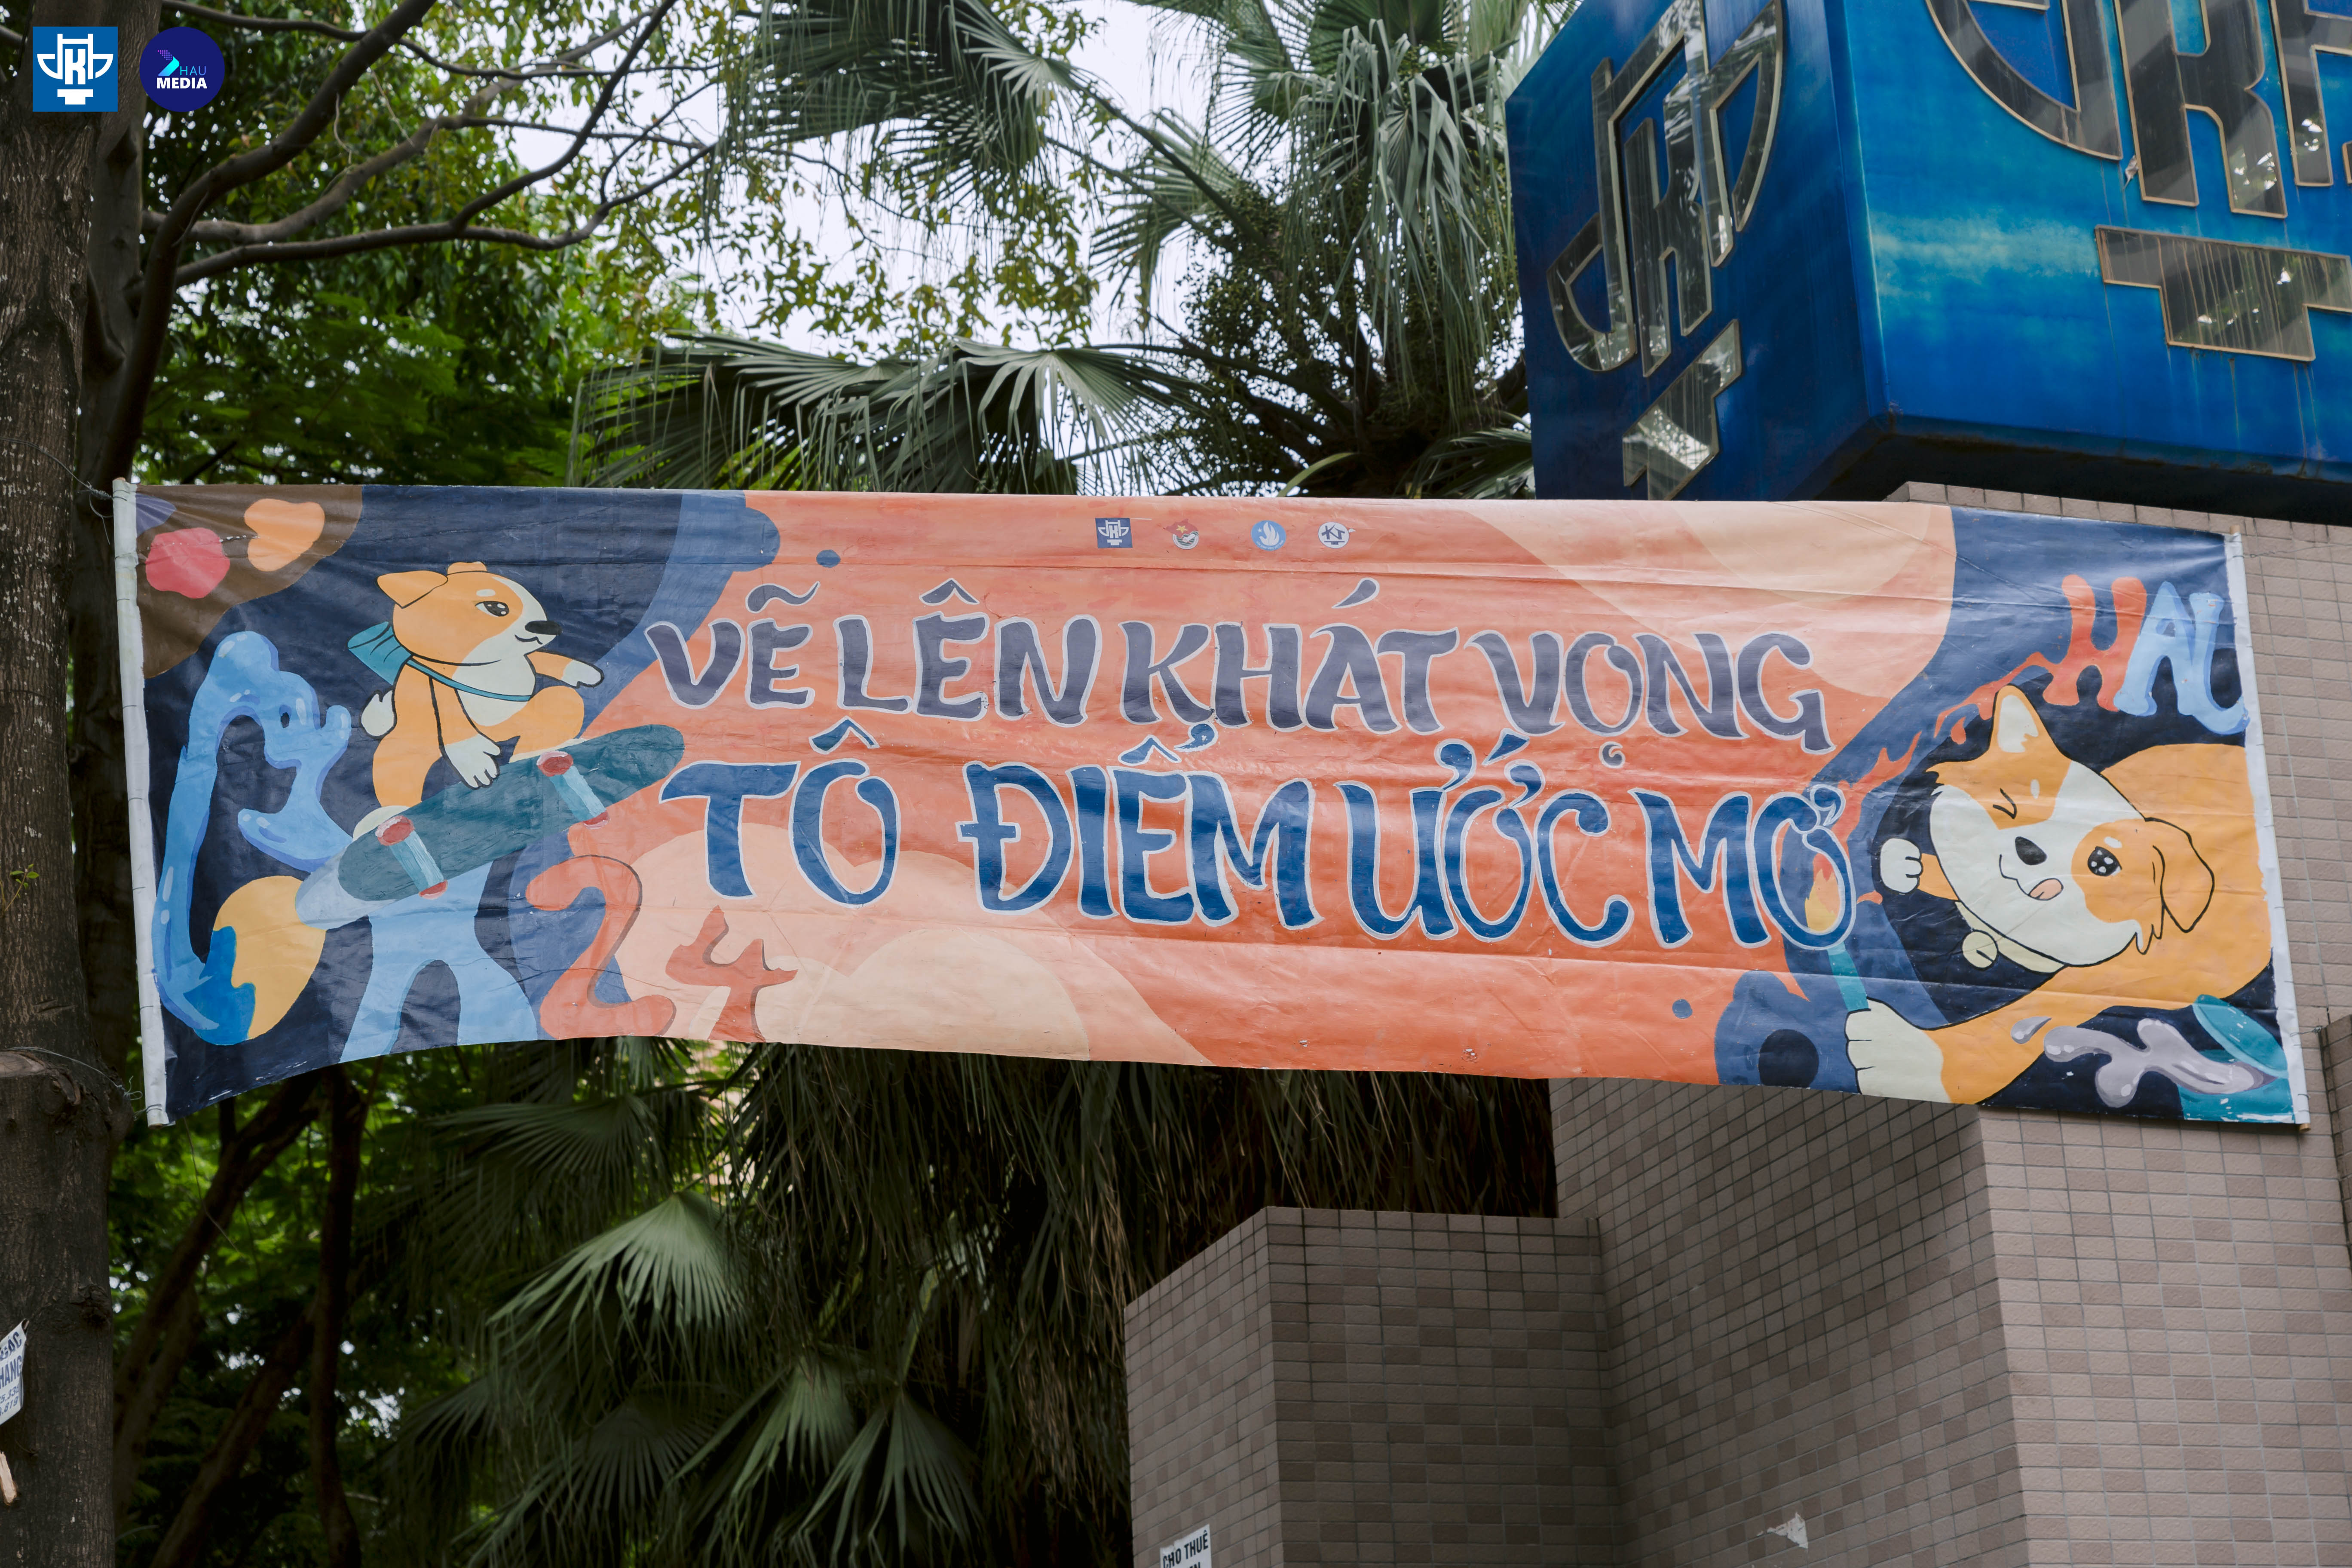 HAU
MEDIA
VẼ LÊN KHÁT VỌNG
TÔ ĐIỂM ƯỚC MƠ
24
HAU
KT
CHO THUÊ